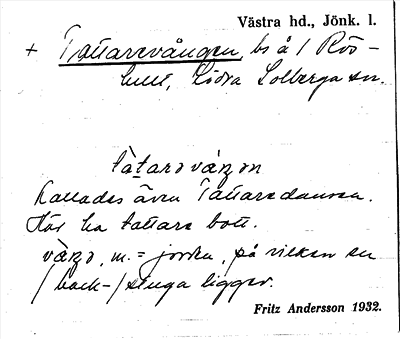 Västra hd., Jönk. l.
+ Tattarevången, bs å 1 Rös-
hult, Södra Solberga sn.
tàtarəvàŋən
Kallades även Tattaredansen.
Här ha tattare bott.
vàŋə, m. = jorden, på vilken en
/back-/stuga ligger.
Fritz Andersson 1932.